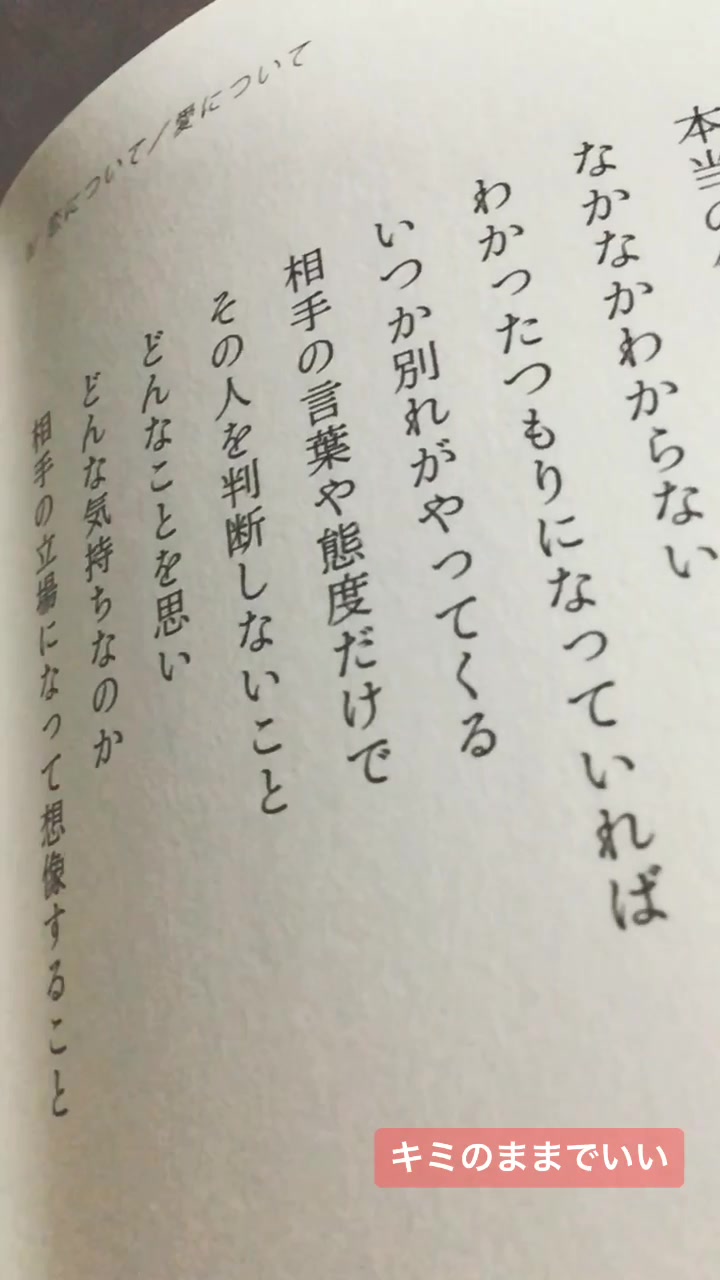 恋について／愛について
本当の
なかなかわからない
わかったつもりになっていれば
いつか別れがやってくる
相手の言葉や態度だけで
その人を判断しないこと
どんなことを思い
どんな気持ちなのか
相手の立場になって想像すること
キミのままでいい